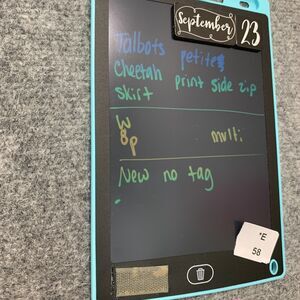 September 23
Talbots petites
Cheetah print side zip
skirt
W
8p multi
New no tag
°E
58